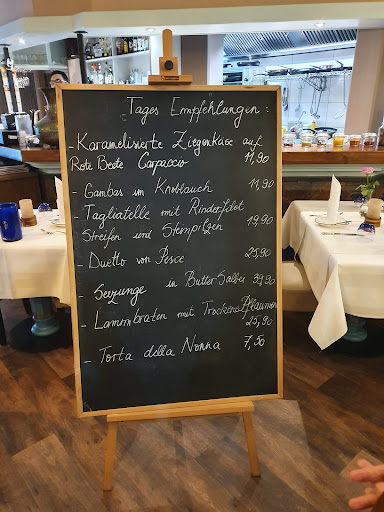 „Tages Empfehlungen:
- Karamelisierte Ziegenkäse auf
Rote Beete Carpaccio 11,90
- Gambas im Knoblauch 11,90
- Tagliatelle mit Rinderfilet
Streifen und Steinpilzen 19,90
- Duetto von Pesce 25,90
- Seezunge in Butter Salbei 39,90
- Lammbraten mit Trockene Pflaumen
25,90
- Torta della Nonna 7,50